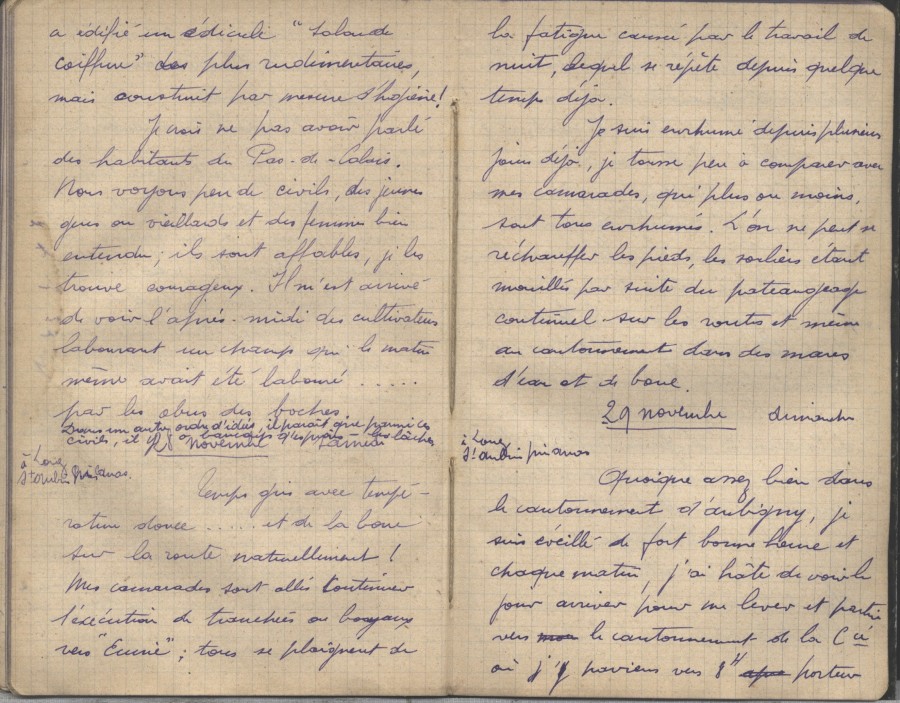 a édifié un édicule "Salon de
coiffure" des plus rudimentaires,
mais construit par mesure d'hygiène!
Je crois ne pas avoir parlé
des habitants du Pas-de-Calais.
Nous voyons peu de civils, des jeunes
gens ou vieillards et des femmes bien
entendu; ils sont affables, je les
trouve courageux. Il m'est arrivé
de voir l'après-midi des cultivateurs
labourant un champs qui le matin
même avait été labouré .....
par les obus des boches.
Dans un autre ordre d'idées, il paraît que parmi ces
civils, il y a beaucoup d'espions - les lâches
28 novembre Samedi
à
St Aubin
Temps gris avec tempé-
rature douce ..... et de la boue
sur la route naturellement!
Mes camarades sont allés continuer
l'éxécution de tranchées ou boyaux
vers "Ecurie"; tous se plaignent de
la fatigue causée par le travail de
nuit, lequel se répète depuis quelque
temps déjà.
Je suis enrhumé depuis plusieurs
jours déjà, je tousse peu à comparer avec
mes camarades, qui plus ou moins,
sont tous enrhumés. L'on ne peut se
réchauffer les pieds, les souliers étant
mouillés par suite du pateaugeage
continuel sur les routes et même
au cantonnement dans des mares
d'eau et de boue.
29 novembre dimanche
à
St Aubin
Quoique assez bien dans
le cantonnement d'Aubigny, je
suis éveillé de fort bonne heure et
chaque matin, j'ai hâte de voir le
jour arriver pour me lever et partir
vers le cantonnement de la Cie
où j'y parviens vers 8H porteur